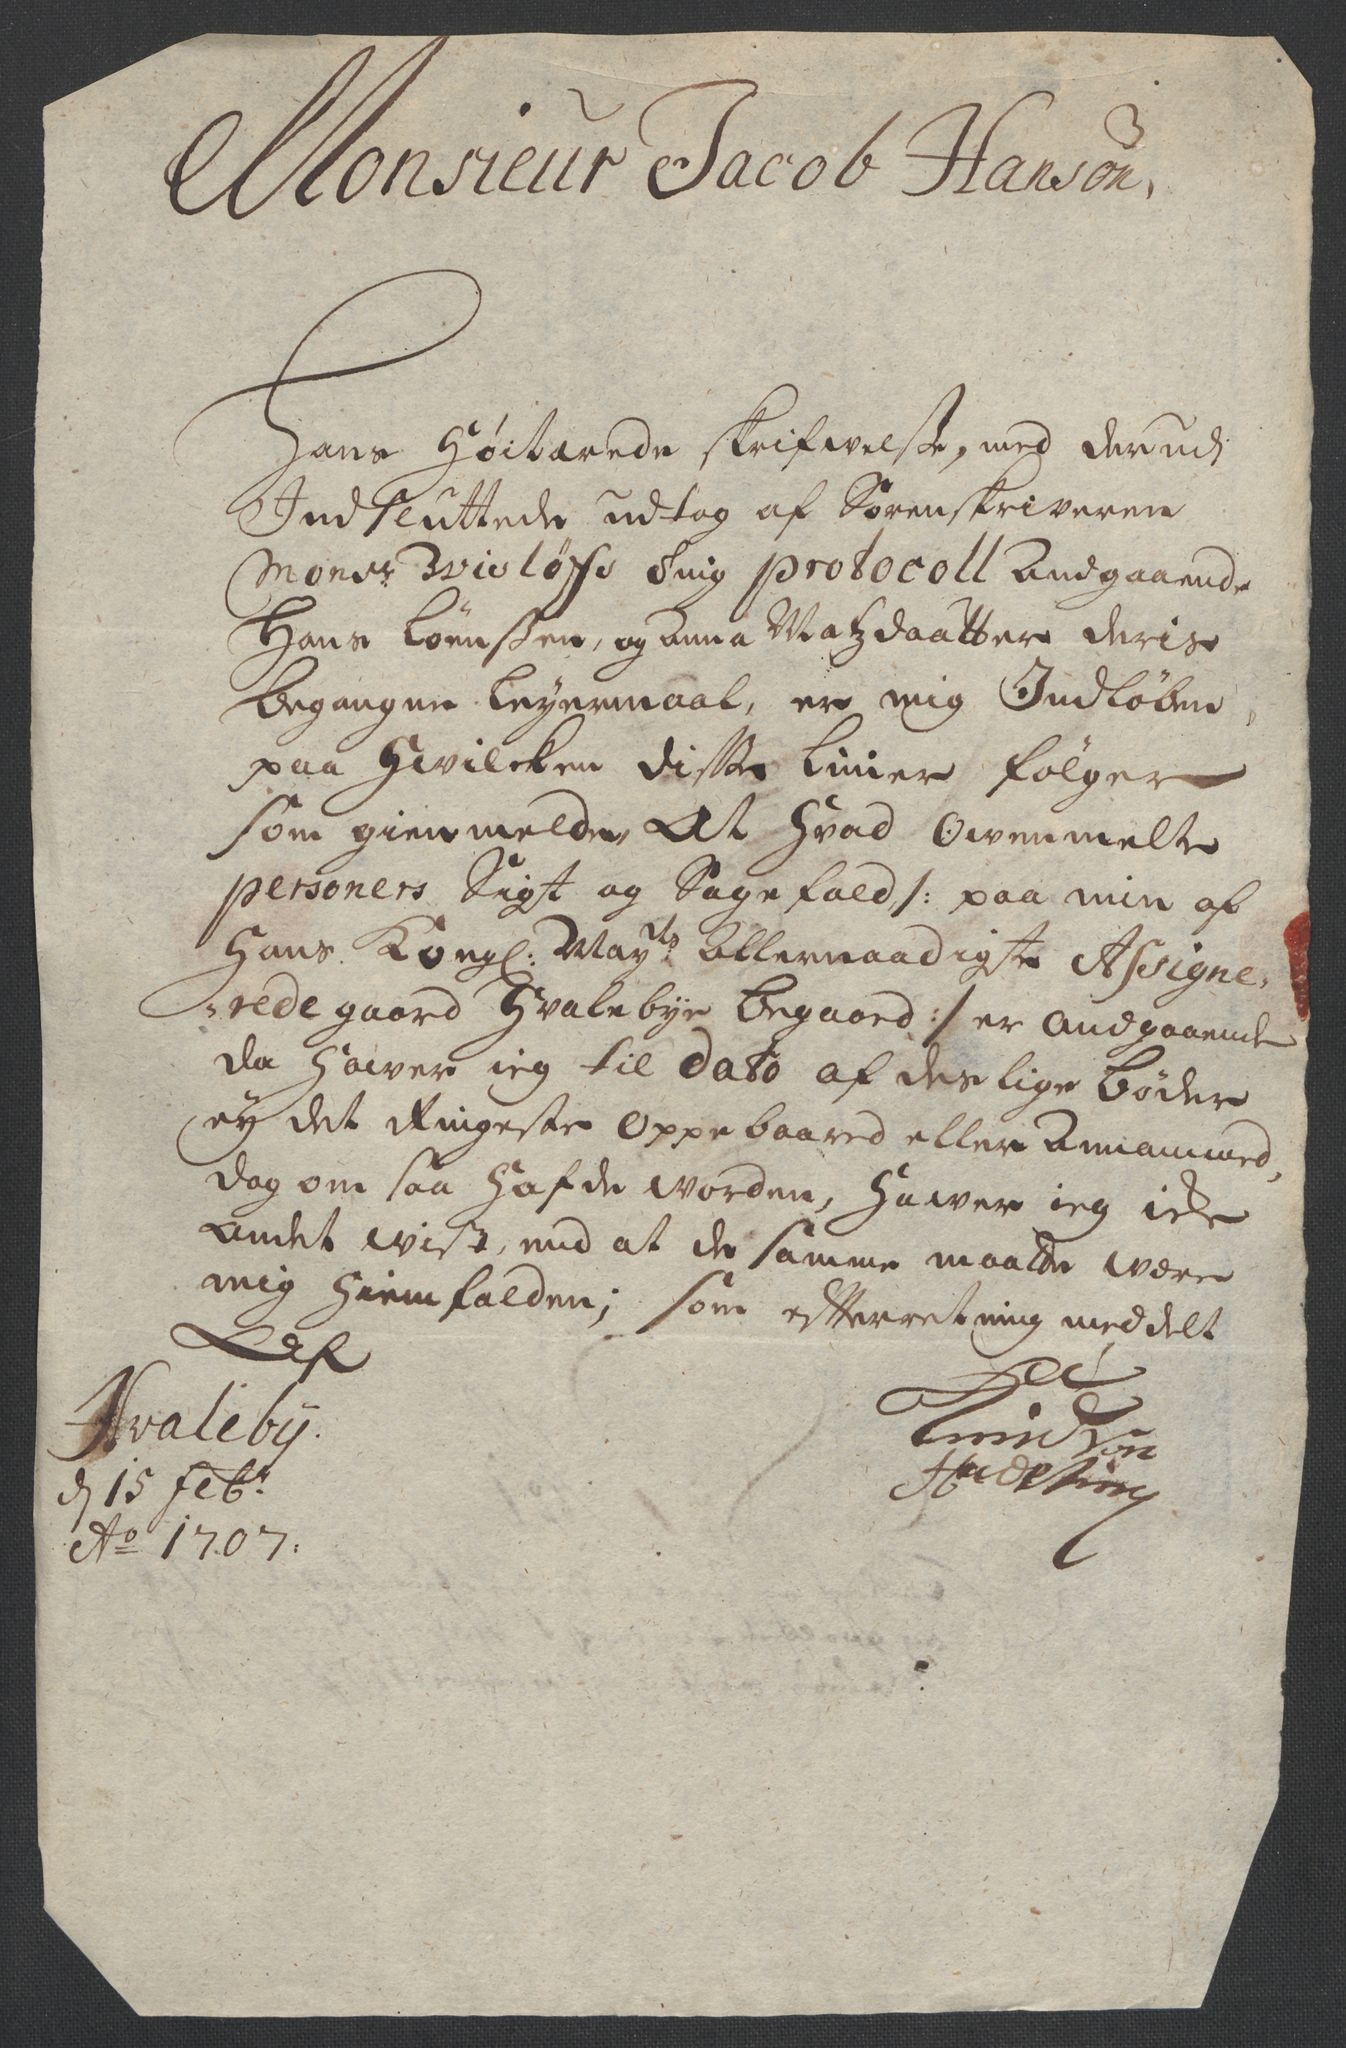 Monsieur Jacob Hanson,
Hans Höitærede skrifwelse, med derudj
Indsluttede udtog af Sorenskriveren
Monsr: protocoll andgaaende
Hans Loenssen, og anna Matzdaatter deris
begangne Leyermaal, er mig Indløben,
paa Hvilcken disse Linier følger
som gienmelder, At Hvad Owenmelte
personers Sigt og Sagefald /: paa min af
Hans Kongl: Mayts allernaadigste Assigne-
-rede gaard Hvalebye begaaed :/ er andgaaende
da Hawer ieg til dato af deslige bøder
ey det Ringeste Oppebaared eller annammed,
dog om saa Hafde worden, Hawer ieg icke
andet wist, end at de samme maatte være
mig Hiemfalden; som efterretning meddelt
Hvaleby.
d 15 febr:
Ao 1707.